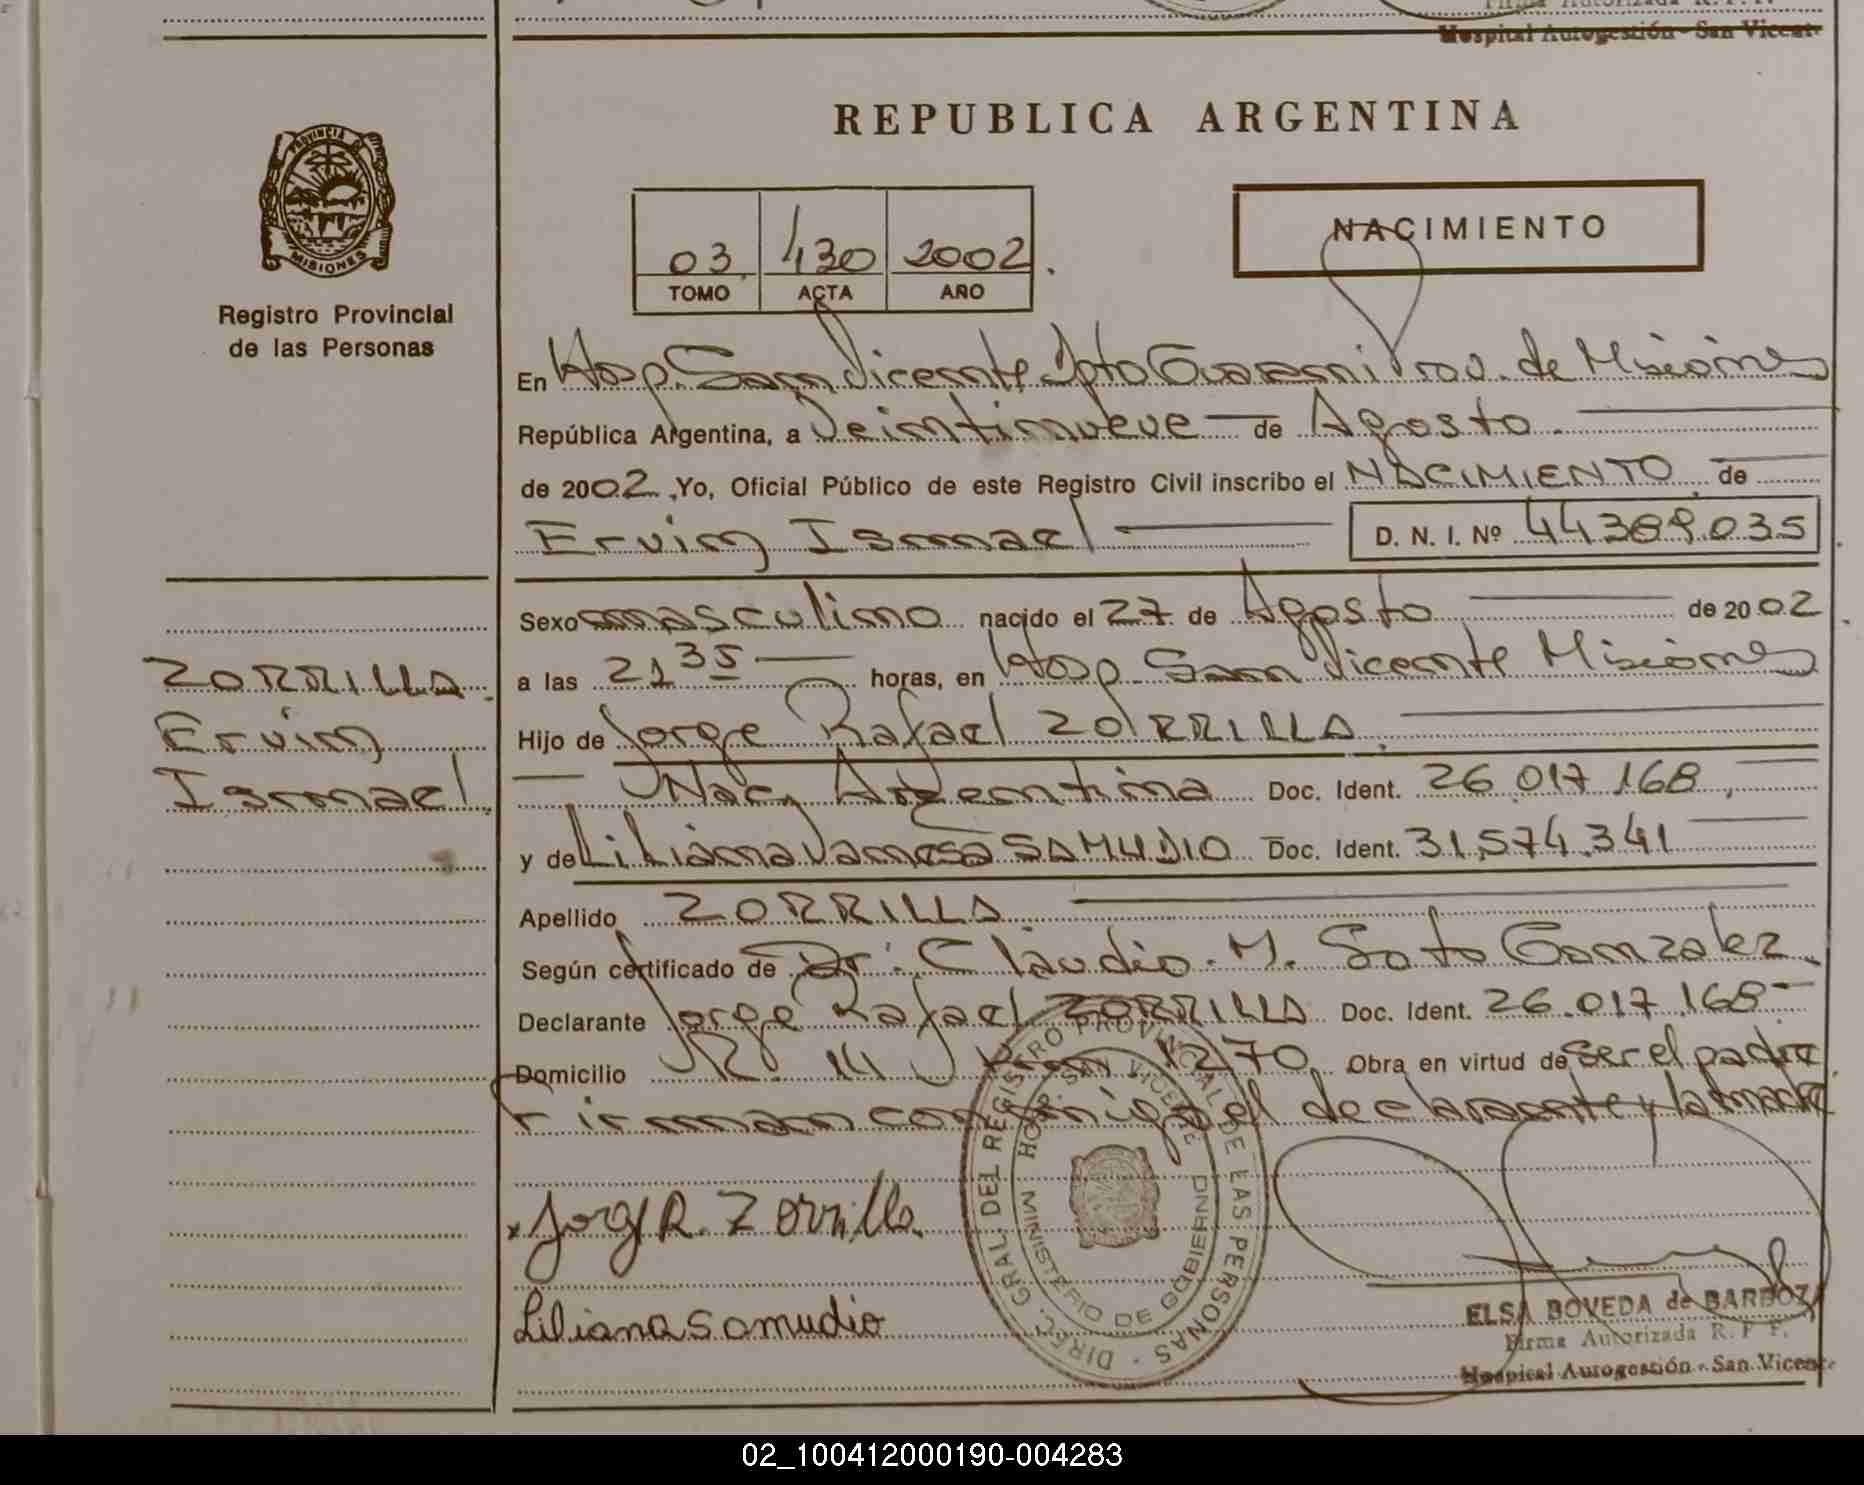 Hospital Autogestión - San Vicente
REPUBLICA ARGENTINA
PROVINCIA DE
MISIONES
Registro Provincial
de las Personas
03 430 2002
TOMO ACTA AÑO
NACIMIENTO
En Hosp. San Vicente Dpto Guarani Prov. de Misiones
República Argentina, a Veintinueve de Agosto
de 2002. Yo, Oficial Público de este Registro Civil inscribo el NACIMIENTO de
Ervin Ismael D. N. I. Nº 44.389.035
Sexo masculino nacido el 27 de Agosto de 2002
a las 21 35 horas, en Hosp. San Vicente Misiones
Hijo de Jorge Rafael ZORRILLA
Nac. Argentina Doc. Ident. 26.017.168
y de Liliana Vanesa SAMUDIO Doc. Ident. 31.574.341
Apellido ZORRILLA
Según certificado de Dr. Claudio M. Soto Gonzalez
Declarante Jorge Rafael ZORRILLA Doc. Ident. 26.017.168
Domicilio R. 14 Km 1270 Obra en virtud de ser el padre
Firman conmigo el declarante y la madre
ZORRILLA
Ervin
Ismael
Jorge R. Zorrilla
Liliana Samudio
DIREC. GRAL. DEL REGISTRO PROVINCIAL DE LAS PERSONAS
HOSP. SAN VICENTE
MINISTERIO DE GOBIERNO
ELSA BOVEDA de BARBOZA
Firma Autorizada R. P. P.
Hospital Autogestión - San Vicente
02_100412000190-004283